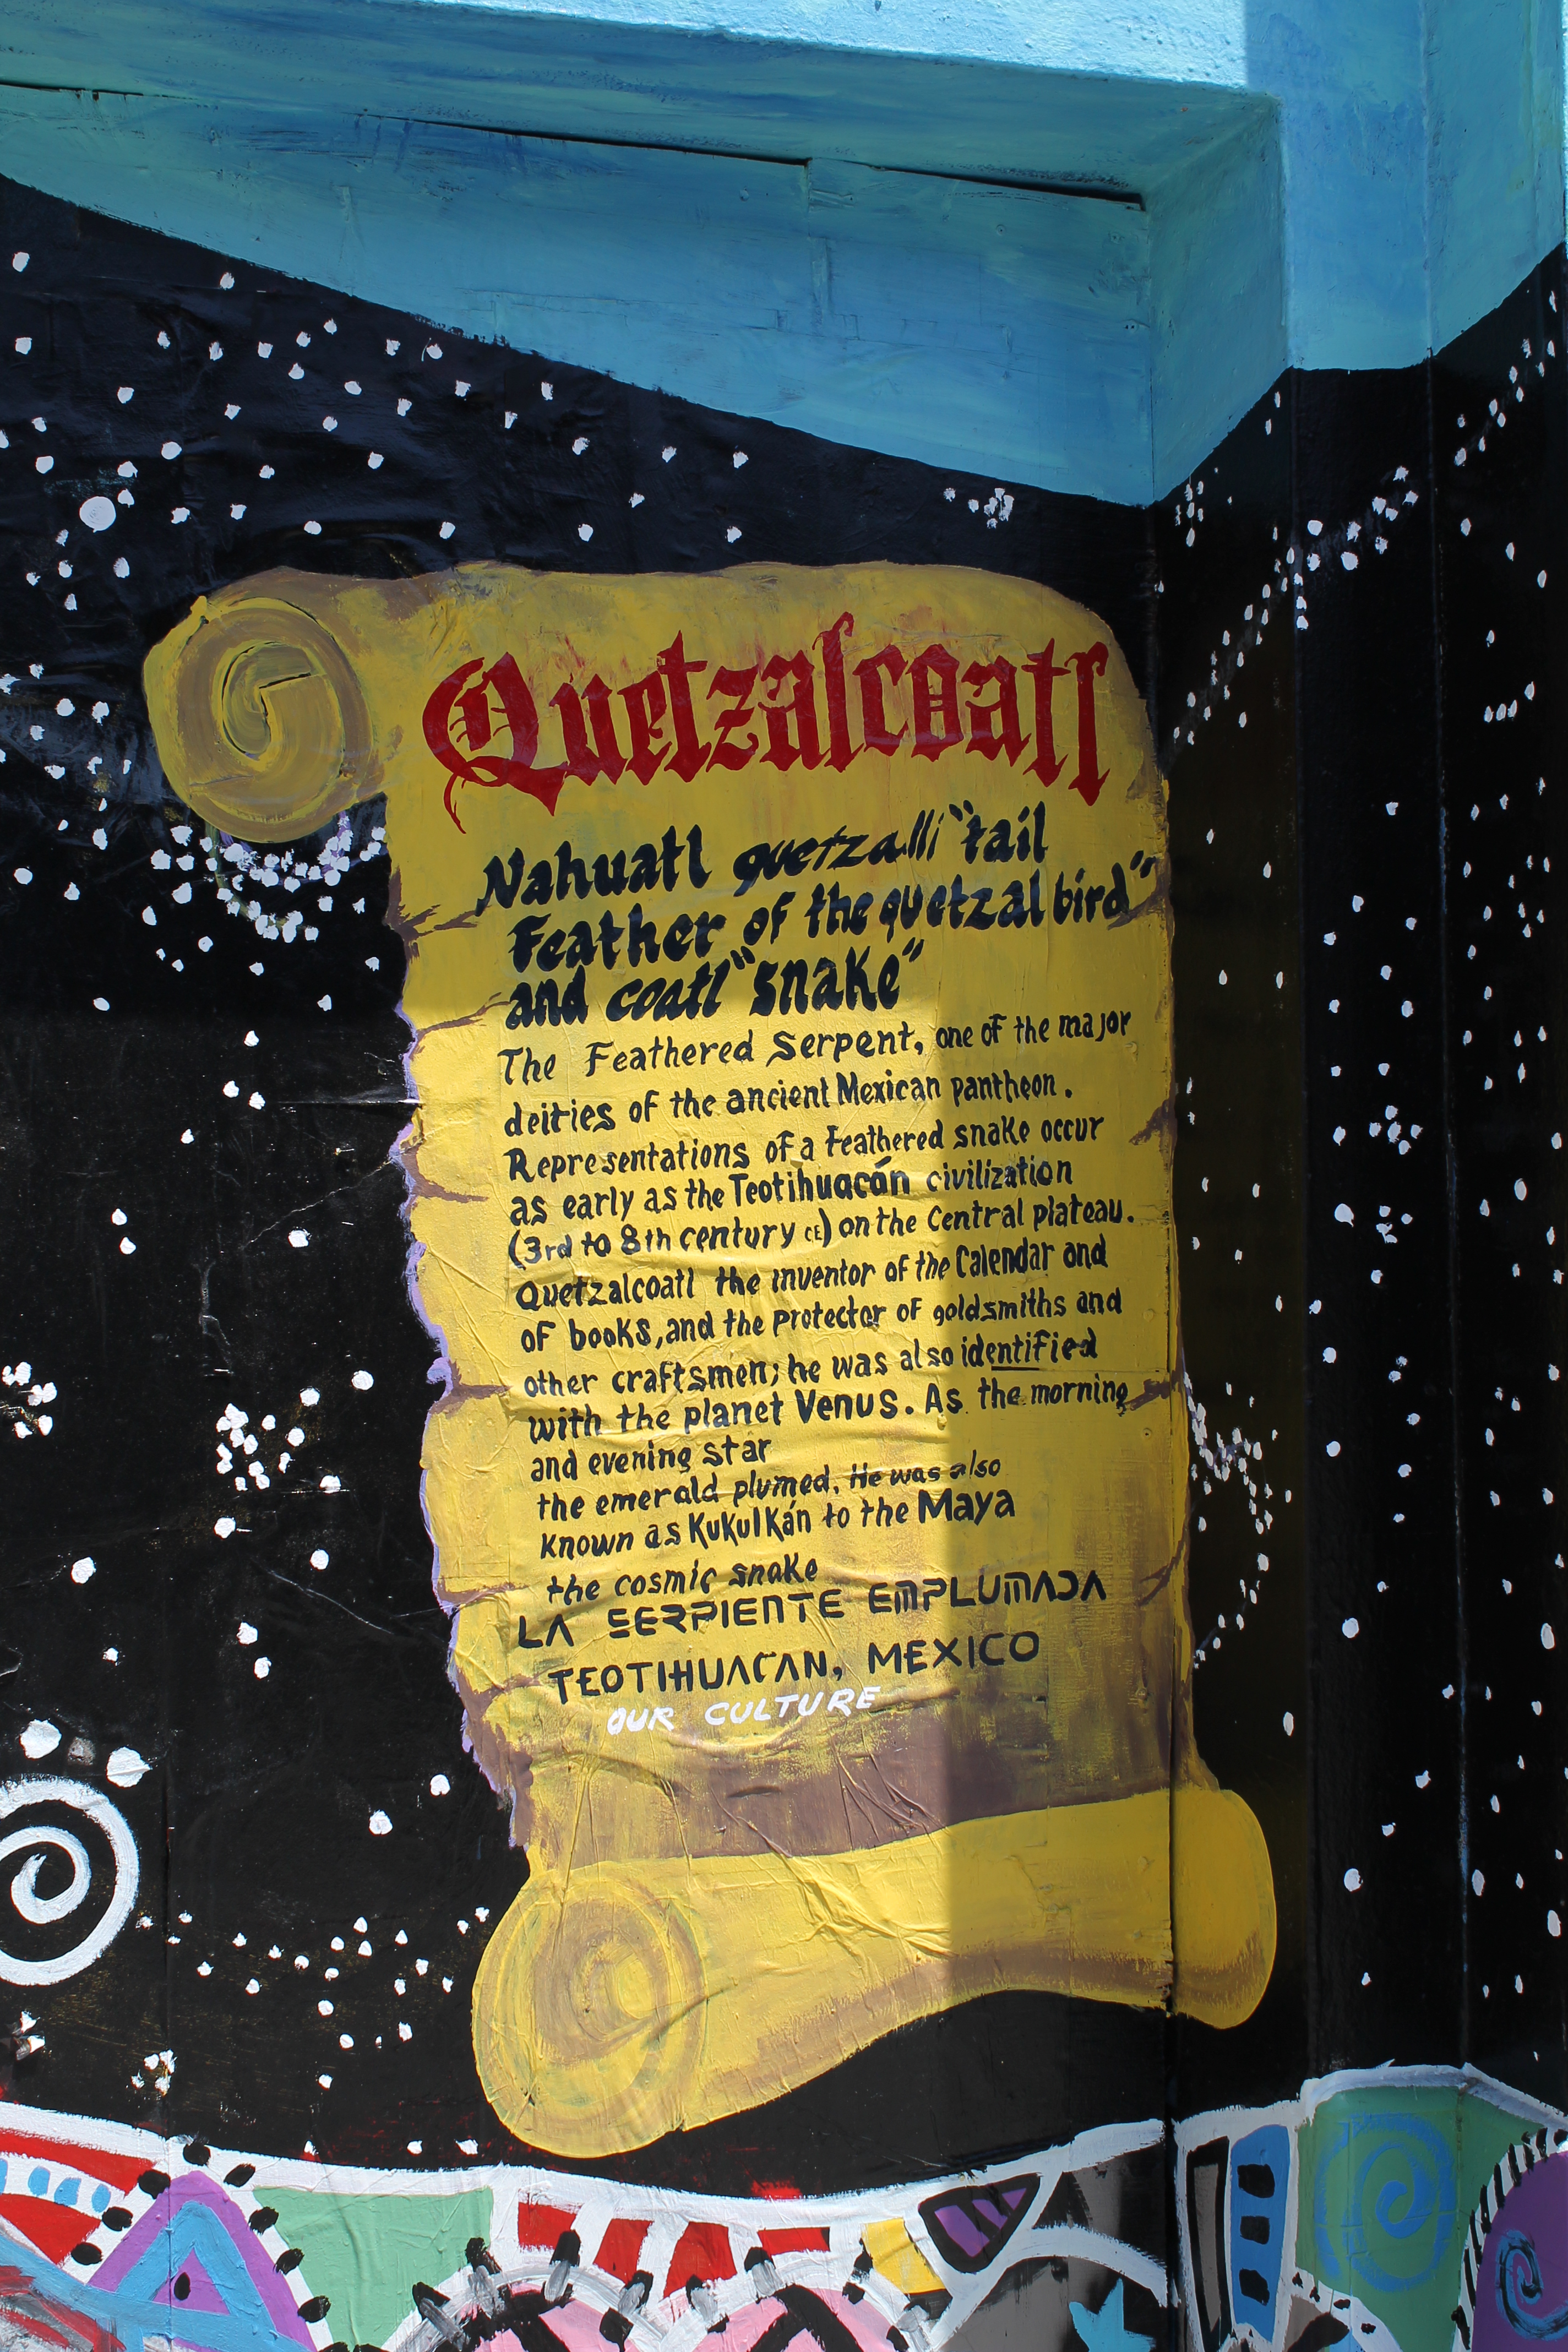 Quetzalcoatl
Nahuatl quetzalli "tail
Feather of the quetzal bird"
and coatl "snake"
The Feathered Serpent, one of the major
deities of the ancient Mexican pantheon.
Representations of a Feathered snake occur
as early as the Teotihuacán civilization
(3rd to 8th century CE) on the Central plateau.
Quetzalcoatl the inventor of the Calendar and
of books, and the Protector of goldsmiths and
other craftsmen; he was also identified
with the planet Venus. As the morning
and evening star
the emerald plumed. He was also
known as Kukulkán to the Maya
the cosmic snake
LA SERPIENTE EMPLUMADA
TEOTIHUACAN, MEXICO
OUR CULTURE